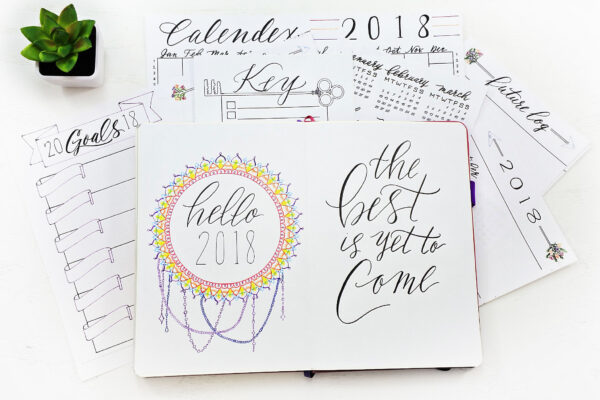 Calender
2018
Jan Feb Mar
Oct Nov Dec
Key
january february march
MTWTFSS MTWTFSS MTWTFSS
future log
2018
20 Goals 18
hello
2018
the
best
is yet to
Come